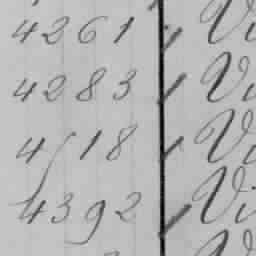 4261 Vi
4283 Vi
4518 Vi
4392 Vi